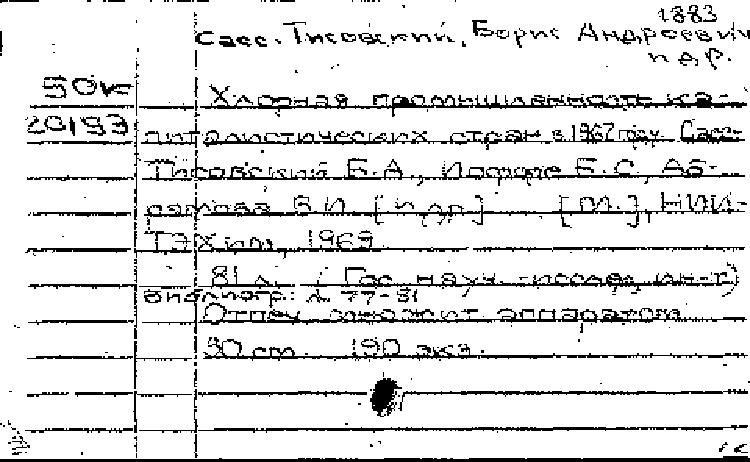 1883
Сасс-Тисовский, Борис Андреевич
и др.
50к Хлорная промышленность ка-
20193 питалистических стран в 1967 году. Сасс-
Тисовский Б.А., Иоффе Б.С., Аб-
Б.И. [и др.] [М.], НИИ-
ТЭХим, 1969.
81 л. (Гос. науч.-исслед. ин-т)
Библиогр.: л. 77-81
Отпеч. множит. аппаратом
30 см. 190 экз.